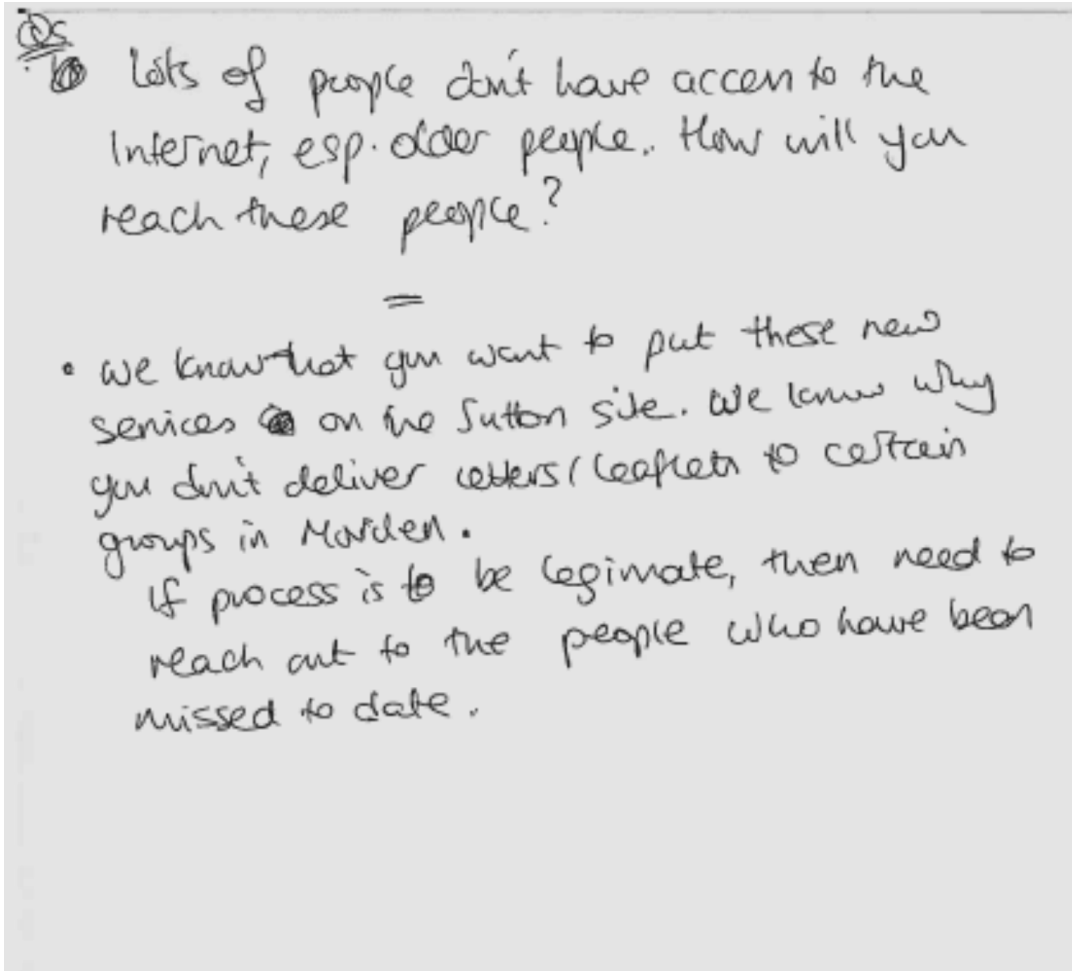 Qs
• Lots of people don't have access to the
Internet, esp. older people. How will you
reach these people?
=
• We know that you want to put these new
services on the Sutton site. We know why
you don't deliver letters/leaflets to certain
groups in Morden.
If process is to be legimate, then need to
reach out to the people who have been
missed to date.